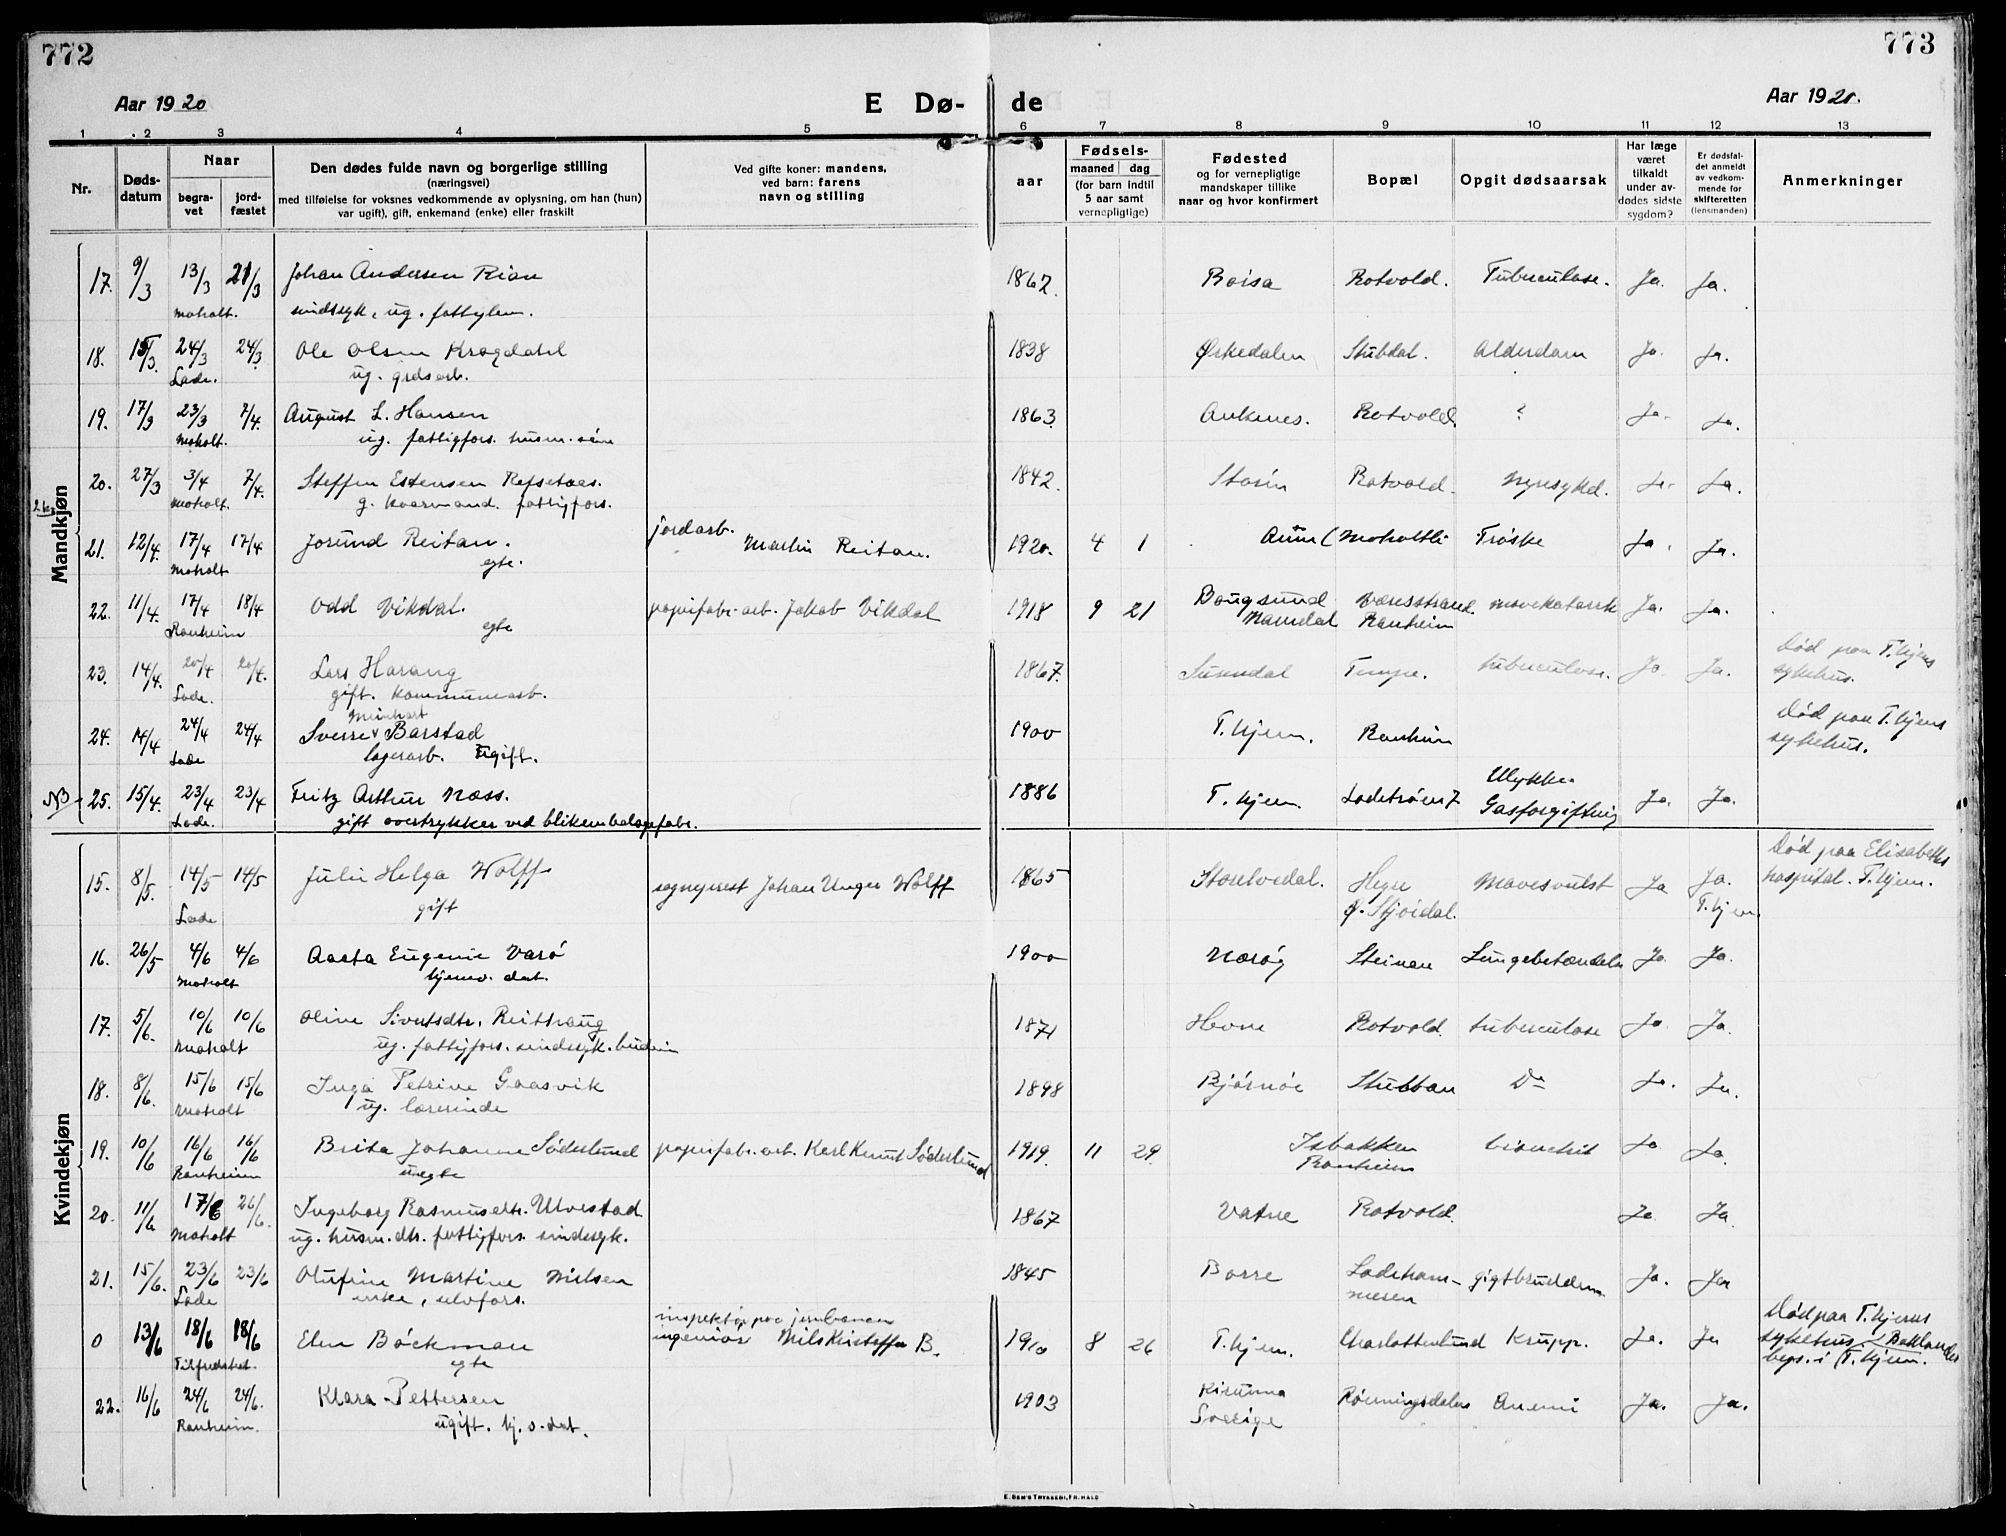 772
773
Aar 1920
E Dø-
de
Aar 1920.
1 2 3 4 5 6 7 8 9 10 11 12 13
Nr.
Døds-
datum
Naar
begra-
vet
jord-
fæstet
Den dødes fulde navn og borgerlige stilling
(næringsvei)
med tilføielse for voksnes vedkommende av oplysning, om han (hun)
var ugift), gift, enkemand (enke) eller fraskilt
Ved gifte koner: mandens,
ved barn: farens
navn og stilling
aar
Fødsels-
maaned dag
(for barn indtil
5 aar samt
vernepligtige)
Fødested
og for vernepligtige
mandskaper tillike
naar og hvor konfirmert
Bopæl
Opgit dødsaarsak
Har læge
været
tilkaldt
under av-
dødes sidste
sygdom?
Er dødsfal-
det anmeldt
av vedkom-
mende for
skifteretten
(lensmanden)
Anmerkninger
Mandkjøn
17. 9/3 13/3 21/3 Johan Andersen Rian 1862. Boisa Rotvold. Tuberculose. Ja. Ja.
Moholt. sindssyk, ug. fattiglem.
18. 15/3. 24/3 24/3 Ole Olsen Krogdahl 1838 Ørkedalen Stubdal. Alderdom Ja. Ja.
Lade. ug. grdsarb.
19. 17/3 23/3 7/4. August L. Hansen 1863. Ankenes. Rotvold ? Ja. Ja.
Moholt. ug. fattigfors. husm. søn
20. 27/3 3/4 7/4. Steffen Estensen Refsetaas. 1842. Rotvold. Nyresykd. Ja. Ja.
Moholt. g. kaarmand. fattigfors.
21. 12/4. 17/4 17/4 Jorund Reitan. jordarb. Martin Reitan. 1920. 4 1 Moholtli Trøske Ja. Ja.
Moholt egte.
22. 11/4. 17/4 18/4 Odd Vikdal. papirfabr. arb. Jakob Vikdal 1918 9 21 Bangsund Væresstrand. Mavekatarrh Ja. Ja.
Ranheim egte Namdal Ranheim
23. 14/4. 20/4 20/4. Lars Harang 1867. Sunndal Tempe. tuberculose. Ja Ja. Død paa T.hjems
Lade. gift. kommunearb. sykehus.
Meinhart
24. 14/4 24/4 24/4 Sverre Barstad 1900 T.hjem. Ranheim Død paa T.hjems
Lade lagerarb. Ugift. sykehus.
NB 25. 15/4. 23/4 23/4 Fritz Arthur Næss. 1886 T.hjem. Ladestrøm 7 Ulykke. Ja. Ja.
Lade. gift overtrykker ved blikemballagefabr. Gasforgiftning
Kvindekjøn
15. 8/5. 14/5 14/5 Julie Helga Wolff sogneprest Johan Unger Wolff 1865 Storelvedal. Hegre Mavesvulst Ja Ja. Død paa Elisabeths
Lade gift Ø. Stjørdal. T.hjem hospital. T.hjem.
16. 26/5 4/6 4/6 Aasta Eugenie Varø 1900 Nærøy Steinan Lungebetændelse Ja. Ja.
Moholt hjemv. dat.
17. 5/6. 10/6 10/6 Oline Sivertsdtr. Reithaug 1871 Hevne Rotvold tuberculose Ja. Ja.
Moholt ug. fattigfors. sindssyk. budeie
18. 8/6. 15/6 15/6 Inga Petrine Gaasvik 1898 Bjørnør Stubban Do Ja. Ja.
Moholt ug. lærerinde
19. 10/6 16/6 16/6 Brita Johanne Søderlund papirfabr. arb. Karl Knut Søderlund 1919. 11 29. Isbakken bronchit Ja Ja.
Ranheim uegte Ranheim
20. 11/6 17/6 26/6. Ingeborg Rasmusdtr. Ulvestad 1867 Vatne Rotvold. Ja Ja
Moholt ug. husm. dtr. fattigfors. sindssyk.
21. 15/6. 23/6 23/6 Olufine Martine Nielsen 1845 Borre Ladeham- gigtbrudden Ja. Ja
Lade enke, selvfors. meren
inspektør paa jernbanen
0 13/6 18/6 18/6 Elen Böckman ingeniør Nils Kristoffer B. 1910 8 26 T.hjem. Charlottenlund Krupp. Ja. Ja Død paa T.hjems
Tilfredshet. egte sykehus. Baklandet
begr. i T.hjem.
22. 16/6 24/6 24/6. Klara Pettersen 1903 Kiruna Rønningsdalen Anemi Ja. Ja.
Ranheim. ugift. hj. v. dat. Sverige